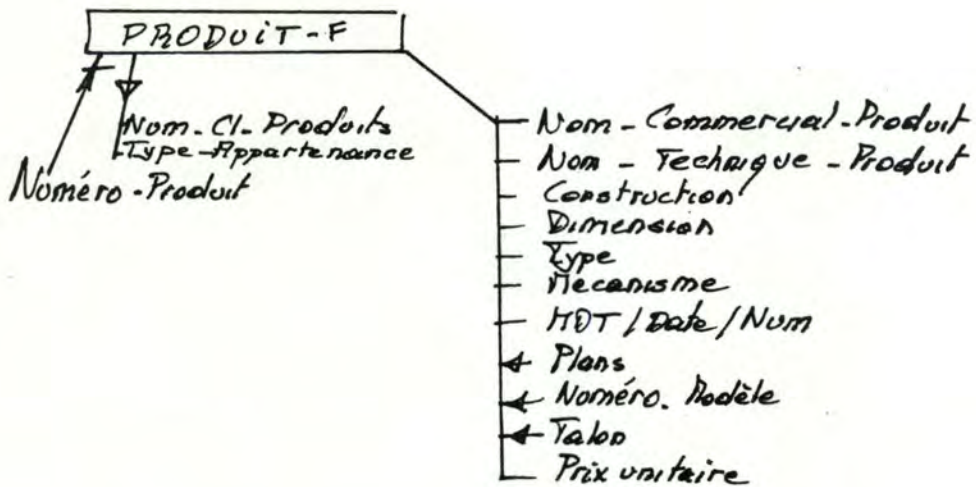 PRODUIT-F
Nom-Cl-Produits
Type-Appartenance
Numéro-Produit
Nom-Commercial-Produit
Nom-Technique-Produit
Construction
Dimension
Type
Mecanisme
MDT/Date/Num
Plans
Numéro. Modèle
Talon
Prix unitaire